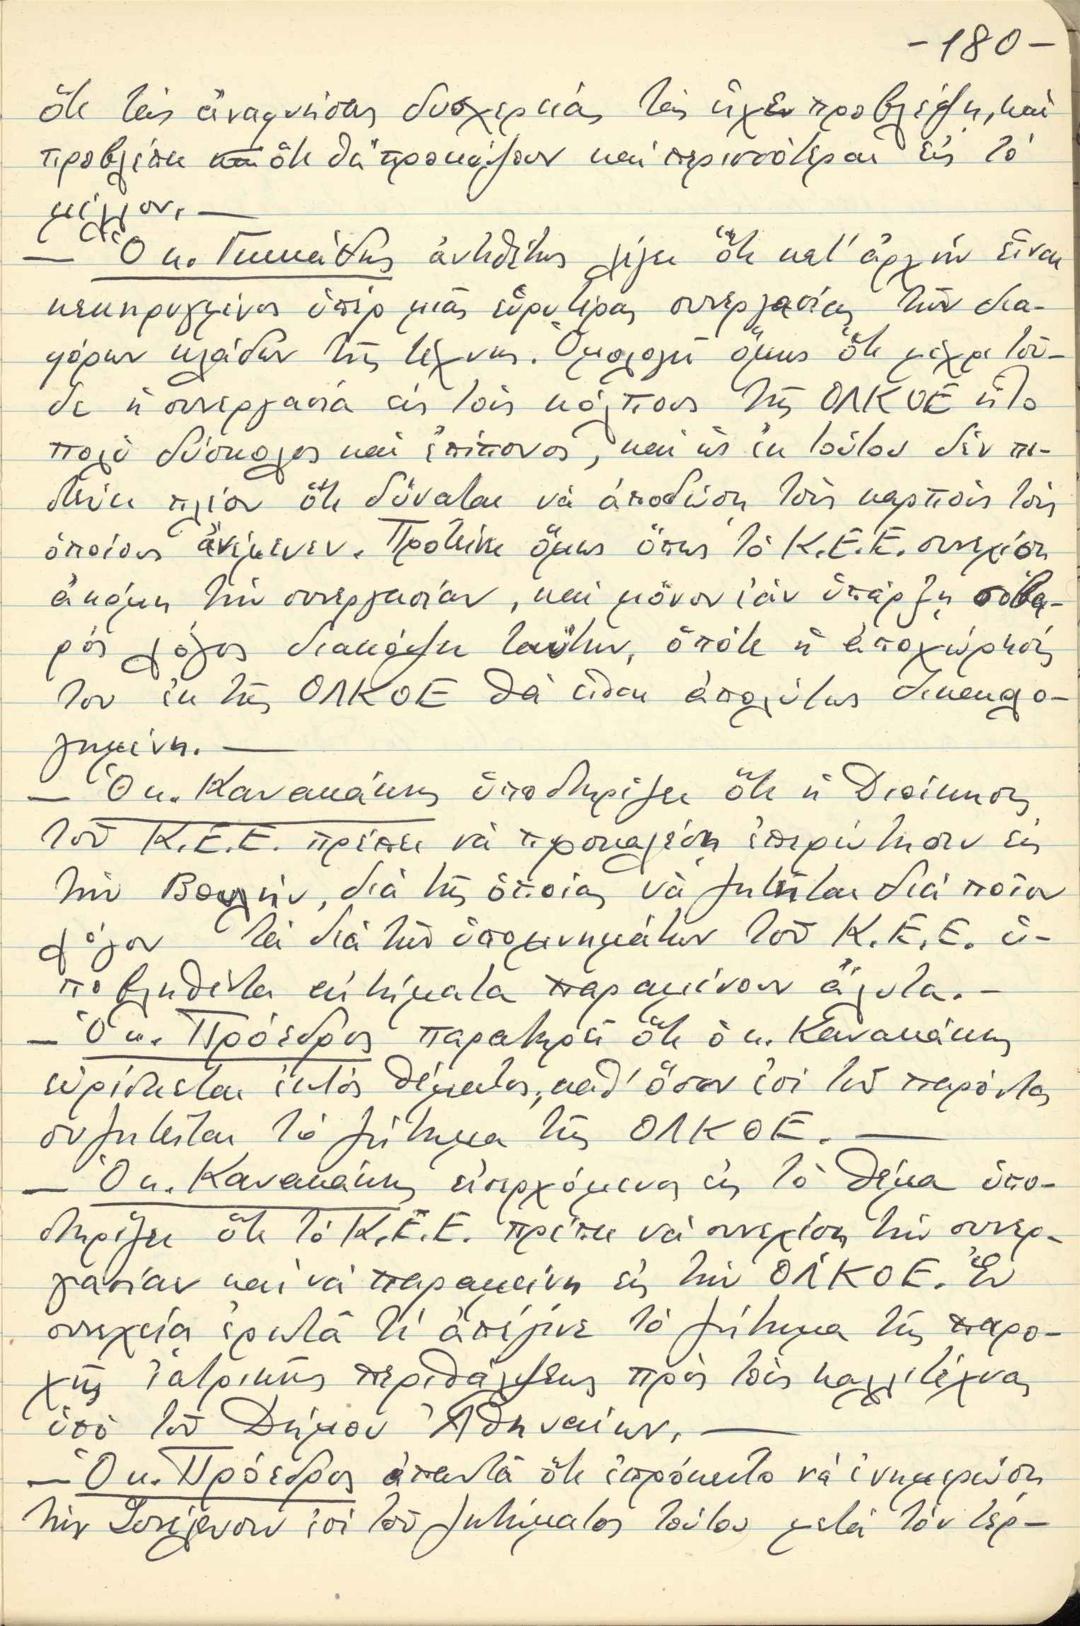 -180-
ὅτι τὰς ἀναφυείσας δυσχερείας τὰς εἶχεν προβλέψη, καὶ
προβλέπει ὅτι θὰ προκύψουν καὶ περισσότεραι εἰς τὸ
μέλλον. —
— Ὁ κ. ἀντιθέτως λέγει ὅτι κατ' ἀρχὴν εἶναι
κεκηρυγμένος ὑπὲρ μιᾶς εὐρυτέρας συνεργασίας τῶν δια-
φόρων κλάδων τῆς τέχνης. Ὁμολογεῖ ὅμως ὅτι μέχρι τοῦ-
δε ἡ συνεργασία εἰς τοὺς κόλπους τῆς ΟΛΚΟΕ ἦτο
πολὺ δύσκολος καὶ ἐπίπονος, καὶ ὡς ἐκ τούτου δὲν πι-
στεύει πλέον ὅτι δύναται νὰ ἀποδώση τοὺς καρποὺς τοὺς
ὁποίους ἀνέμενεν. Προτείνει ὅμως ὅπως τὸ Κ.Ε.Ε. συνεχίση
ἀκόμη τὴν συνεργασίαν, καὶ μόνον ἐὰν ὑπάρξη σοβα-
ρὸς λόγος διακόψει ταύτην, ὁπότε ἡ ἀποχώρησίς
του ἐκ τῆς ΟΛΚΟΕ θὰ εἶναι ἀπολύτως δικαιολο-
γημένη. —
— Ὁ κ. Κανακάκης ὑποστηρίζει ὅτι ἡ Διοίκησις
τοῦ Κ.Ε.Ε. πρέπει νὰ προκαλέση ἐπερώτησιν εἰς
τὴν Βουλήν, διὰ τῆς ὁποίας νὰ ζητῆται διὰ ποῖον
λόγον τὰ διὰ τῶν ὑπομνημάτων τοῦ Κ.Ε.Ε. ὑ-
ποβληθέντα αἰτήματα παραμένουν ἄλυτα. —
— Ὁ κ. Πρόεδρος παρατηρεῖ ὅτι ὁ κ. Κανακάκης
εὑρίσκεται ἐκτὸς θέματος, καθ' ὅσον ἐπὶ τοῦ παρόντος
συζητεῖται τὸ ζήτημα τῆς ΟΛΚΟΕ. —
— Ὁ κ. Κανακάκης εἰσερχόμενος εἰς τὸ θέμα ὑπο-
στηρίζει ὅτι τὸ Κ.Ε.Ε. πρέπει νὰ συνεχίση τὴν συνερ-
γασίαν καὶ νὰ παραμείνη εἰς τὴν ΟΛΚΟΕ. Ἐν
συνεχείᾳ ἐρωτᾶ τί ἀπέγινε τὸ ζήτημα τῆς παρο-
χῆς ἰατρικῆς περιθάλψεως πρὸς τοὺς καλλιτέχνας
ὑπὸ τοῦ Δήμου Ἀθηναίων. —
— Ὁ κ. Πρόεδρος ἀπαντᾶ ὅτι ἐπρόκειτο νὰ ἐνημερώση
τὴν Συνέλευσιν ἐπὶ τοῦ ζητήματος τούτου μετὰ τὸν τερ-